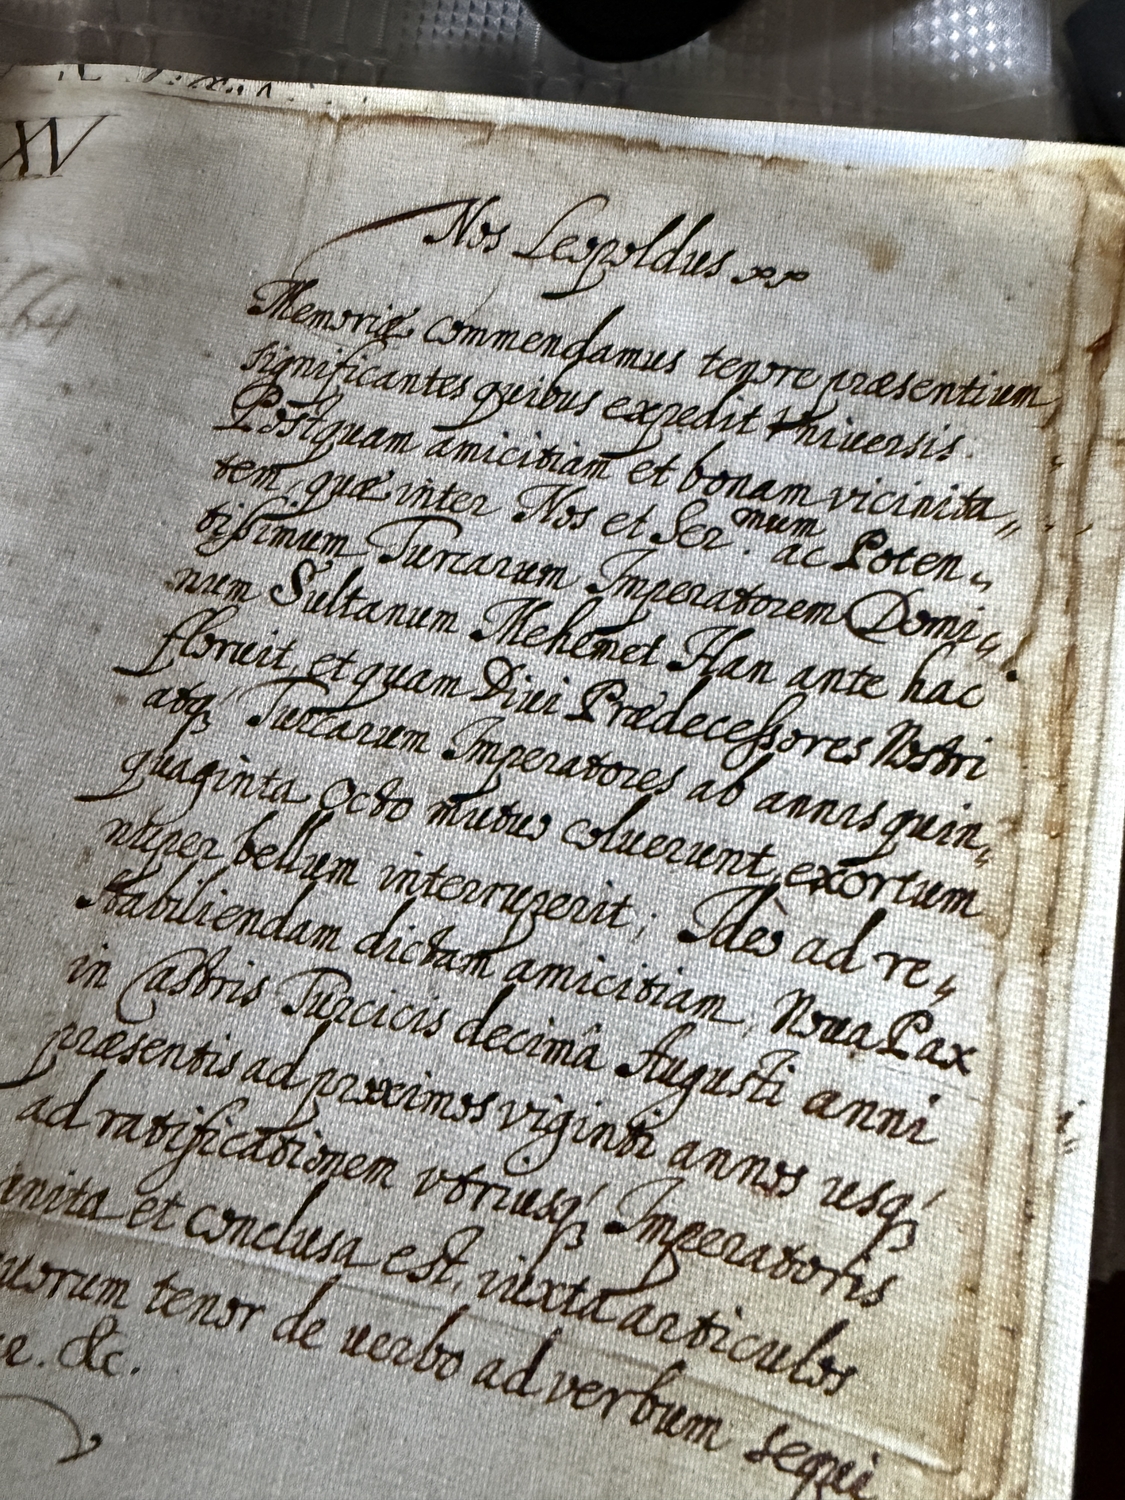 XV
Nos Leopoldus pp
664
Memoriæ commendamus tenore præsentium,
significantes quibus expedit Vniuersis.
Postquam amicitiam et bonam vicinita„
tem, quæ inter Nos et Ser.mum ac Poten„
tissimum Turcarum Imperatorem Domi„
num Sultanum Mehemet Han ante hac
floruit, et quam Diui Prædecessores Nostri
atq' Turcarum Imperatores ab annis quin„
quaginta octo mutuo coluerunt, exortum
nuper bellum interruperit; Ideò ad re„
stabiliendam dictam amicitiam, Noua Pax
in Castris Turcicis decimâ Augusti anni
præsentis ad proximos viginti annos usq'
ad ratificationem vtriusq' Imperatoris
inita et conclusa est, iuxta articulos
quorum tenor de uerbo ad verbum sequi
&c.